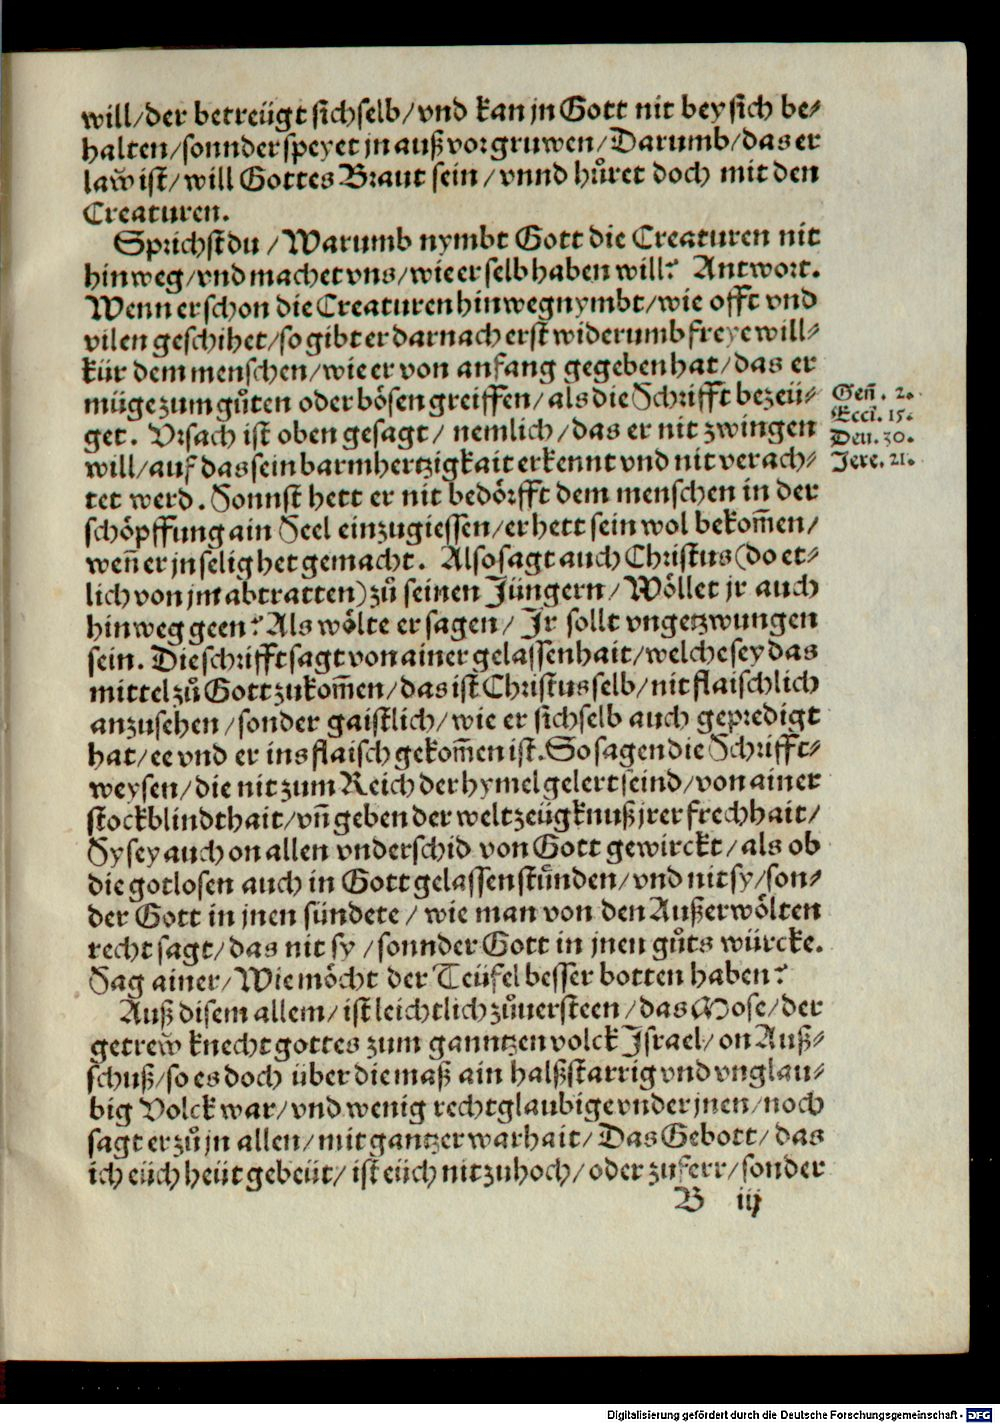 will/der betreügt sichselb/vnd kan jn Gott nit bey sich be⸗
halten/sonnder speyet jn auß vor gruwen/Darumb/das er
law̃ ist/will Gottes Braut sein/vnnd hůret doch mit den
Creaturen.
Sprichst du/Warumb nymbt Gott die Creaturen nit
hinweg/vnd machet vns/wie er selb haben will? Antwort.
Wenn er schon die Creaturen hinweg nymbt/wie offt vnd
vilen geschihet/so gibt er darnach erst widerumb freye will⸗
kür dem menschen/wie er von anfang gegeben hat/das er
müge zum gůten oder bösen greiffen/als die Schrifft bezeü⸗
get. Vrsach ist oben gesagt/nemlich/das er nit zwingen
will/auf das sein barmhertzigkait erkennt vnd nit verach⸗
tet werd. Sonnst hett er nit bedörfft dem menschen in der
schöpffung ain Seel einzugiessen/er hett sein wol bekom̃en/
wen̄ er jn selig het gemacht. Also sagt auch Christus(do et⸗
lich von jm abtratten)zů seinen Jüngern/Wöllet jr auch
hinweg geen? Als wölte er sagen/Jr sollt vngetzwungen
sein. Die schrifft sagt von ainer gelassenhait/welche sey das
mittel zů Gott zukom̃en/das ist Christus selb/nit flaischlich
anzusehen/sonder gaistlich/wie er sichselb auch gepredigt
hat/ee vnd er ins flaisch gekom̃en ist. So sagen die Schrifft⸗
weysen/die nit zum Reich der hymel gelert seind/von ainer
stockblindthait/vn̄ geben der welt zeügknuß jrer frechhait/
Sy sey auch on allen vnderschid von Gott gewirckt/als ob
die gotlosen auch in Gott gelassen stünden/vnd nit sy/son⸗
der Gott in jnen sündete/wie man von den Außerwölten
recht sagt/das nit sy/sonnder Gott in jnen gůts würcke.
Sag ainer/Wie möcht der Teüfel besser botten haben?
Auß disem allem/ist leichtlich zůuersteen/das Mose/der
getrew̃ knecht gottes zum ganntzen volck Israel/on Auß⸗
schuß/so es doch über die maß ain halßstarrig vnd vnglau⸗
big Volck war/vnd wenig rechtglaubige vnder jnen/noch
sagt er zů jn allen/mit gantzer warhait/Das Gebott/das
ich eüch heüt gebeüt/ist eüch nit zu hoch/oder zu ferr/sonder
B iij
Gen̄. 2.
Eccī. 15.
Deu. 30.
Jere. 21.
Digitalisierung gefördert durch die Deutsche Forschungsgemeinschaft - DFG